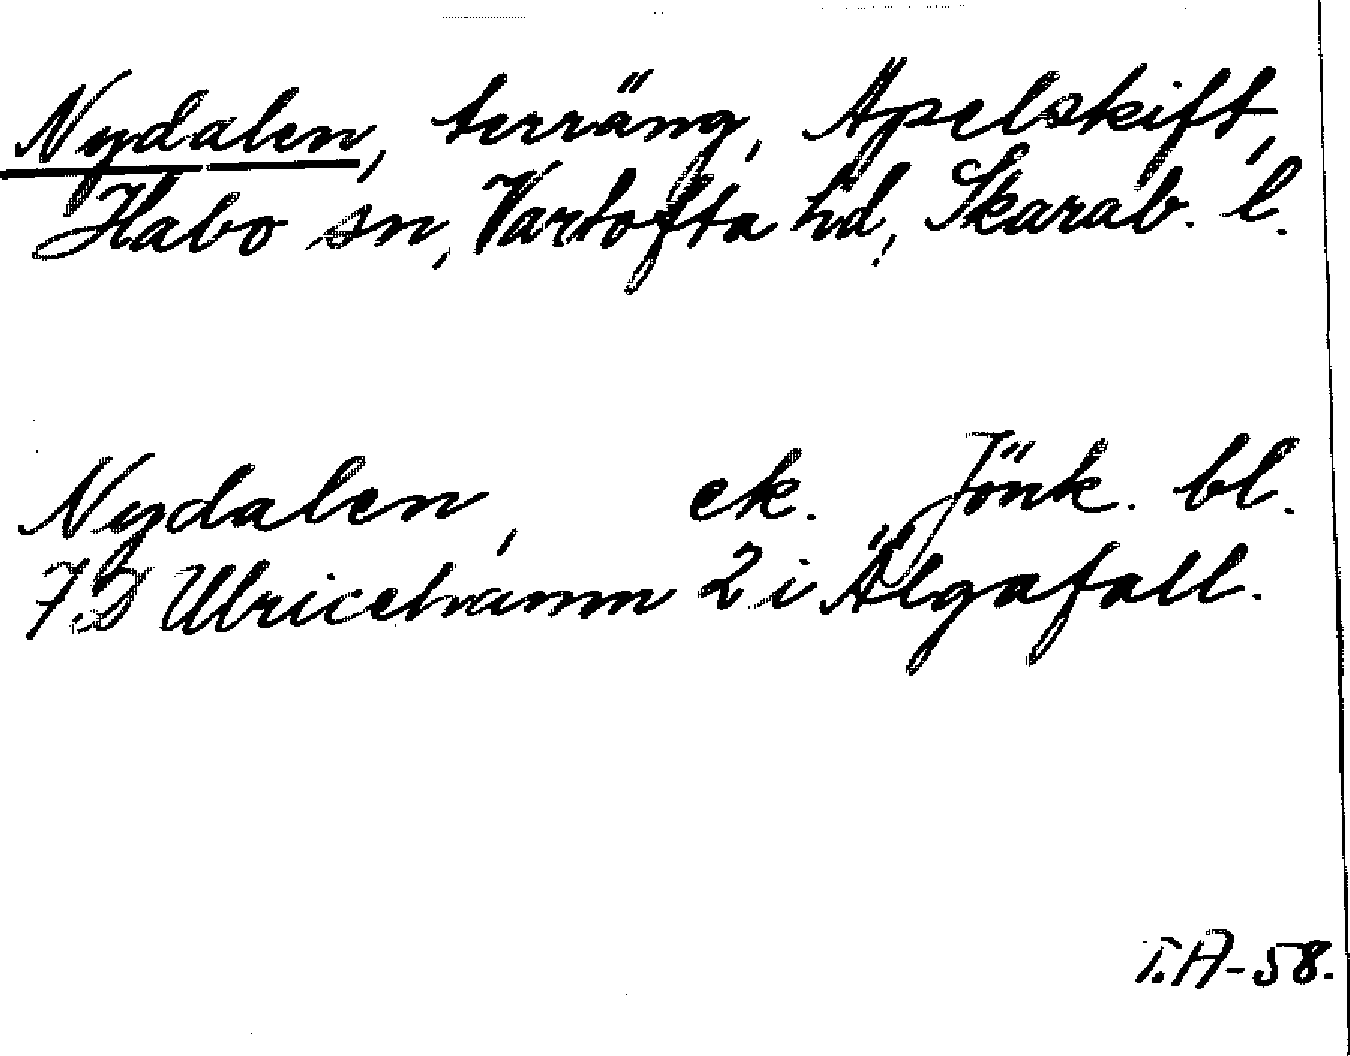 Nydalen, terräng, Äpelskift,
Habo sn, Vartofta hd, Skarab. l.
Nydalen, ek. Jönk. bl.
7D Ulricehamn 2 i Älgafall.
T.A-58.